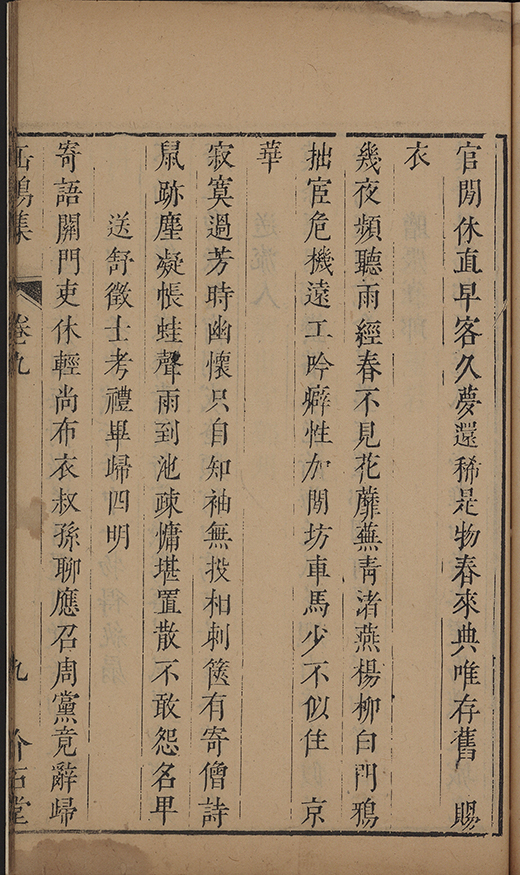 官閒休直早客久夢還稀是物春來典唯存舊　賜
衣
幾夜頻聽雨經春不見花蘼蕪青渚燕楊柳白門鴉
拙宦危機遠工吟癖性加閒坊車馬少不似住　京
華
寂寞過芳時幽懷只自知袖無投相刺篋有寄僧詩
鼠跡塵凝帳蛙聲雨到池疎慵堪置散不敢怨名卑
送舒徵士考禮畢歸四明
寄語關門吏休輕尚布衣叔孫聊應召周黨竟辭歸
缶鳴集　卷九　九　介石堂